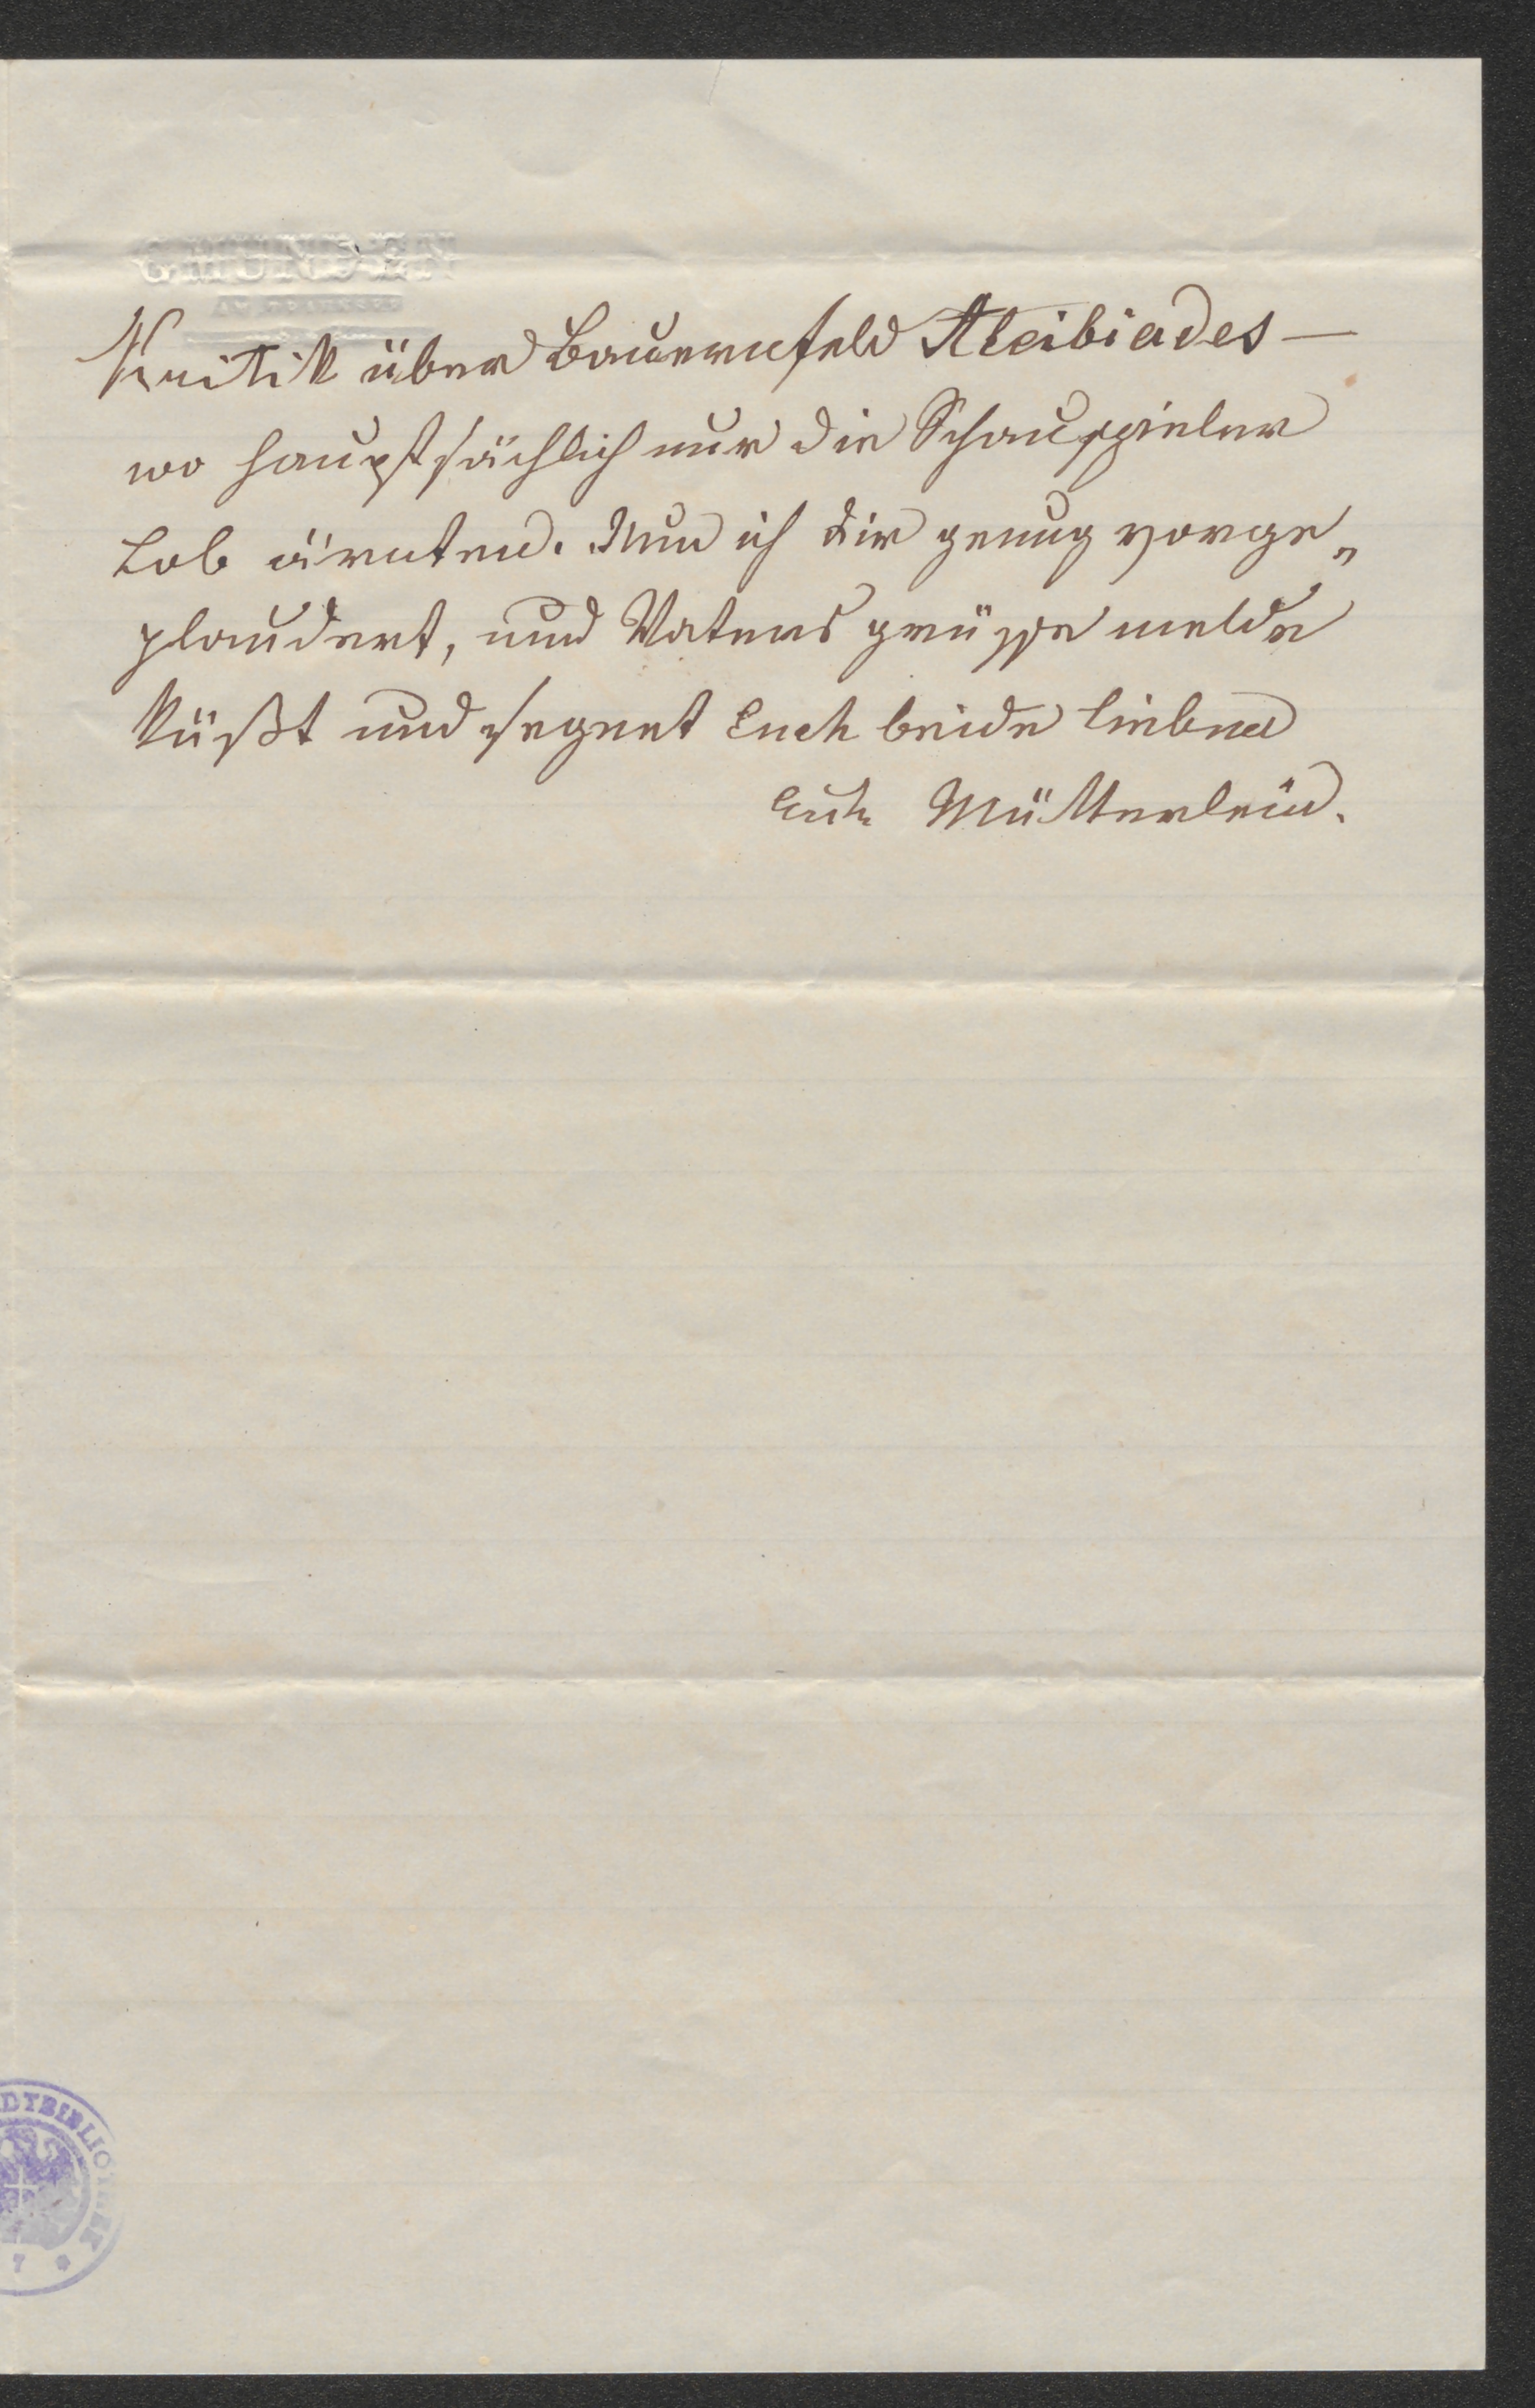 GMUNDEN
AM TRAUNSEE
Kritik über Bauernfeld Alcibiades —
wo hauptsächlich nur die Schauspieler
Lob ärnten. Nun ich dir genug vorge„
plaudert, und Vaters grüsse melde
küßt und segnet Euch beide lieben
Euch Mütterlein.
DTBIBLIOTHEK
7 *